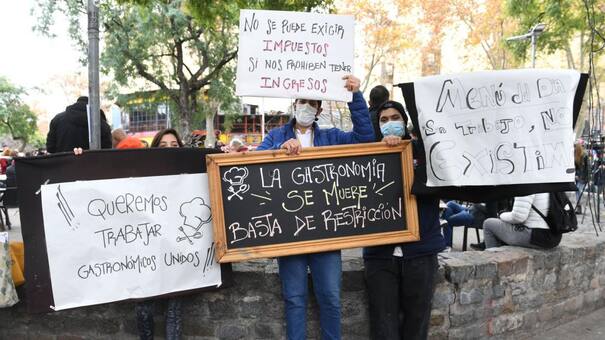 No SE PUEDE EXIGIR
IMPUESTOS
SI NOS PROHIBEN TENER
INGRESOS
QUEREMOS
TRABAJAR
GASTRONÓMICOS UNIDOS
LA GASTRONOMÍA
SE MUERE
BASTA DE RESTRICCIÓN
MENÚ
TRABAJO, NO
EXISTIM